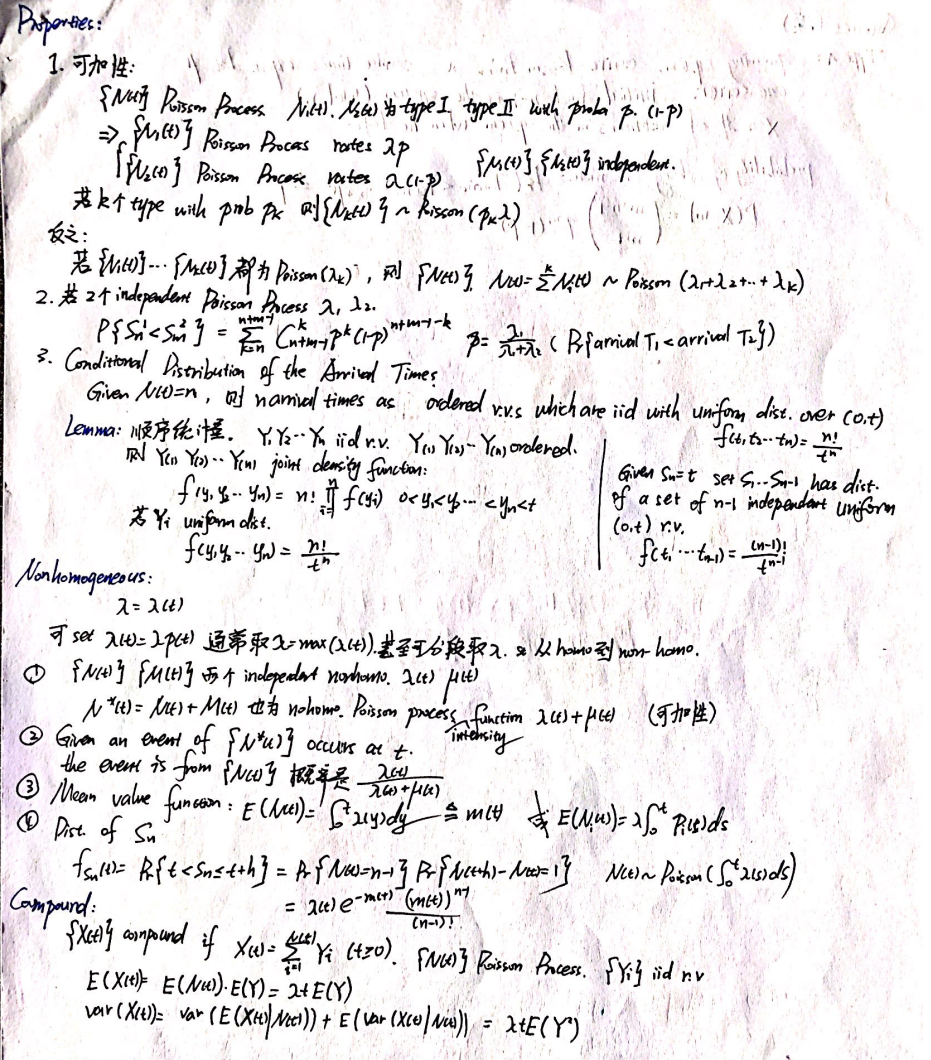 Properties:
1. 可加性:
{N(t)} Poisson Process. N₁(t). N₂(t) 为 type I, type II with proba p. (1-p)
⇒ { {N₁(t)} Poisson Process rates λp
{N₂(t)} Poisson Process rates λ(1-p) {N₁(t)}, {N₂(t)} independent.
若 k个 type with prob pₖ 则 {Nₖ(t)} ~ Poisson (pₖλ)
反之:
若 {N₁(t)} ... {Nₖ(t)} 都为 Poisson (λₖ), 则 {N(t)}, N(t) = Σᵏ Nᵢ(t) ~ Poisson (λ₁+λ₂+...+λₖ)
2. 若 2个 independent Poisson Process λ₁, λ₂.
P{Sₙ¹ < Sₘ²} = Σ_{k=n}^{n+m-1} C_{n+m-1}^k p^k (1-p)^{n+m-1-k} p = λ₁/(λ₁+λ₂) (Pr{arrival T₁ < arrival T₂})
3. Conditional Distribution of the Arrival Times
Given N(t)=n, 则 n arrival times as ordered r.v.s which are iid with uniform dist. over (0,t)
f(t₁,t₂...tₙ) = n!/tⁿ
Lemma: 顺序统计量. Y₁ Y₂...Yₙ iid r.v. Y₍₁₎ Y₍₂₎...Y₍ₙ₎ ordered.
则 Y₍₁₎ Y₍₂₎...Y₍ₙ₎ joint density function:
f(y₁ y₂...yₙ) = n! ∏_{i=1}^n f(yᵢ) 0<y₁<y₂...<yₙ<t
若 Yᵢ uniform dist.
f(y₁ y₂...yₙ) = n!/tⁿ
Given Sₙ=t set S₁...Sₙ₋₁ has dist.
of a set of n-1 independent uniform
(0,t) r.v.
f(t₁...tₙ₋₁) = (n-1)!/tⁿ⁻¹
Nonhomogeneous:
λ = λ(t)
可 set λ(t) = λp(t) 通常取 λ=max(λ(t)). 甚至可分段取 λ. 从 homo 到 non-homo.
① {N(t)} {M(t)} 两个 independent nonhomo. λ(t) μ(t)
N*(t) = N(t) + M(t) 也为 nohomo. Poisson process, intensity function λ(t)+μ(t) (可加性)
② Given an event of {N*(t)} occurs at t.
the event is from {N(t)} 概率是 λ(t)/(λ(t)+μ(t))
③ Mean value function: E(N(t)) = ∫₀ᵗ λ(y)dy ≜ m(t) 或 E(Nᵢ(t)) = λ∫₀ᵗ Pᵢ(s)ds
④ Dist. of Sₙ
f_{Sₙ}(t) = Pr{t<Sₙ≤t+h} = Pr{N(t)=n-1} Pr{N(t+h)-N(t)=1} N(t) ~ Poisson (∫₀ᵗ λ(s)ds)
= λ(t) e^{-m(t)} (m(t))^{n-1}/(n-1)!
Compound:
{X(t)} compound if X(t) = Σ_{i=1}^{N(t)} Yᵢ (t≥0). {N(t)} Poisson Process. {Yᵢ} iid r.v
E(X(t)) = E(N(t))·E(Y) = λt E(Y)
var(X(t)) = var(E(X(t)|N(t))) + E(var(X(t)|N(t))) = λtE(Y²)